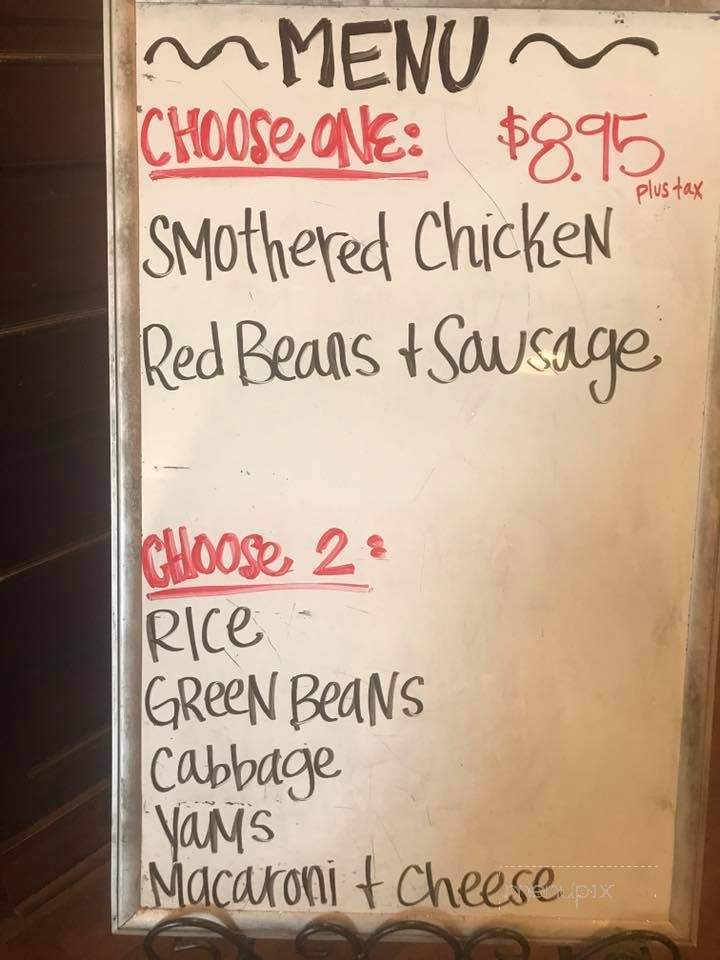 MENU
CHOOSE ONE: $8.95
plus tax
Smothered Chicken
Red Beans + Sausage
CHOOSE 2:
Rice
Green Beans
Cabbage
Yams
Macaroni + Cheese
menupix